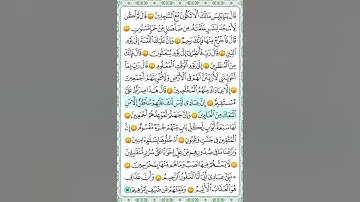 قَالَ يَٰٓإِبْلِيسُ مَا لَكَ أَلَّا تَكُونَ مَعَ ٱلسَّٰجِدِينَ قَالَ لَمْ أَكُن
لِّأَسْجُدَ لِبَشَرٍ خَلَقْتَهُۥ مِن صَلْصَٰلٍ مِّنْ حَمَإٍ مَّسْنُونٍ
قَالَ فَٱخْرُجْ مِنْهَا فَإِنَّكَ رَجِيمٌ وَإِنَّ عَلَيْكَ ٱللَّعْنَةَ إِلَىٰ يَوْمِ
ٱلدِّينِ قَالَ رَبِّ فَأَنظِرْنِىٓ إِلَىٰ يَوْمِ يُبْعَثُونَ قَالَ فَإِنَّكَ
مِنَ ٱلْمُنظَرِينَ إِلَىٰ يَوْمِ ٱلْوَقْتِ ٱلْمَعْلُومِ قَالَ رَبِّ بِمَآ
أَغْوَيْتَنِى لَأُزَيِّنَنَّ لَهُمْ فِى ٱلْأَرْضِ وَلَأُغْوِيَنَّهُمْ أَجْمَعِينَ
إِلَّا عِبَادَكَ مِنْهُمُ ٱلْمُخْلَصِينَ قَالَ هَٰذَا صِرَٰطٌ عَلَىَّ
مُسْتَقِيمٌ إِنَّ عِبَادِى لَيْسَ لَكَ عَلَيْهِمْ سُلْطَٰنٌ إِلَّا مَنِ
ٱتَّبَعَكَ مِنَ ٱلْغَاوِينَ وَإِنَّ جَهَنَّمَ لَمَوْعِدُهُمْ أَجْمَعِينَ
لَهَا سَبْعَةُ أَبْوَٰبٍ لِّكُلِّ بَابٍ مِّنْهُمْ جُزْءٌ مَّقْسُومٌ إِنَّ
ٱلْمُتَّقِينَ فِى جَنَّٰتٍ وَعُيُونٍ ٱدْخُلُوهَا بِسَلَٰمٍ ءَامِنِينَ
وَنَزَعْنَا مَا فِى صُدُورِهِم مِّنْ غِلٍّ إِخْوَٰنًا عَلَىٰ سُرُرٍ مُّتَقَٰبِلِينَ
لَا يَمَسُّهُمْ فِيهَا نَصَبٌ وَمَا هُم مِّنْهَا بِمُخْرَجِينَ
نَبِّئْ عِبَادِىٓ أَنِّىٓ أَنَا ٱلْغَفُورُ ٱلرَّحِيمُ وَأَنَّ عَذَابِى
هُوَ ٱلْعَذَابُ ٱلْأَلِيمُ وَنَبِّئْهُمْ عَن ضَيْفِ إِبْرَٰهِيمَ